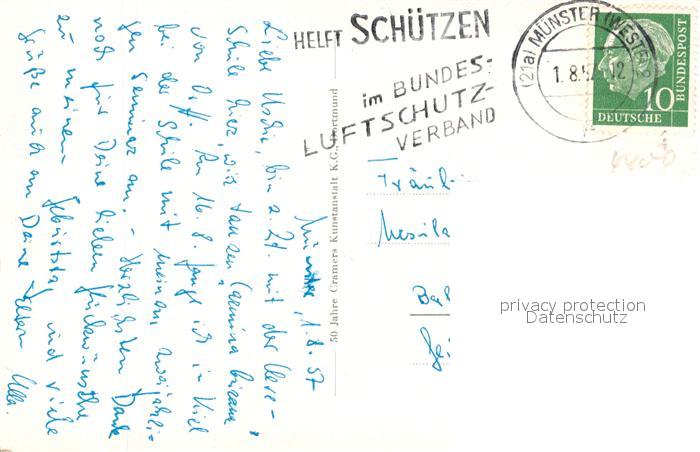 HELFT SCHÜTZEN
im BUNDES-
LUFTSCHUTZ-
VERBAND
(21a) MÜNSTER (WESTF)
1.8.57 12
DEUTSCHE
BUNDESPOST
10
50 Jahre Cramers Kunstanstalt K.G., Dortmund
Münster, 1.8.57
Liebe Uschi, bin z. Zt. mit der
Schule hier, wir tanzen Carmina burana
von Orff. Am 16.8. fange ich in Kiel
bei der Schule mit meinem zweijähri-
gen Seminar an. - Herzlichsten Dank
noch für Deine lieben Glückwünsche
zu meinem Geburtstag und viele
Grüße auch an Deine Eltern
Fräul
privacy protection
Datenschutz